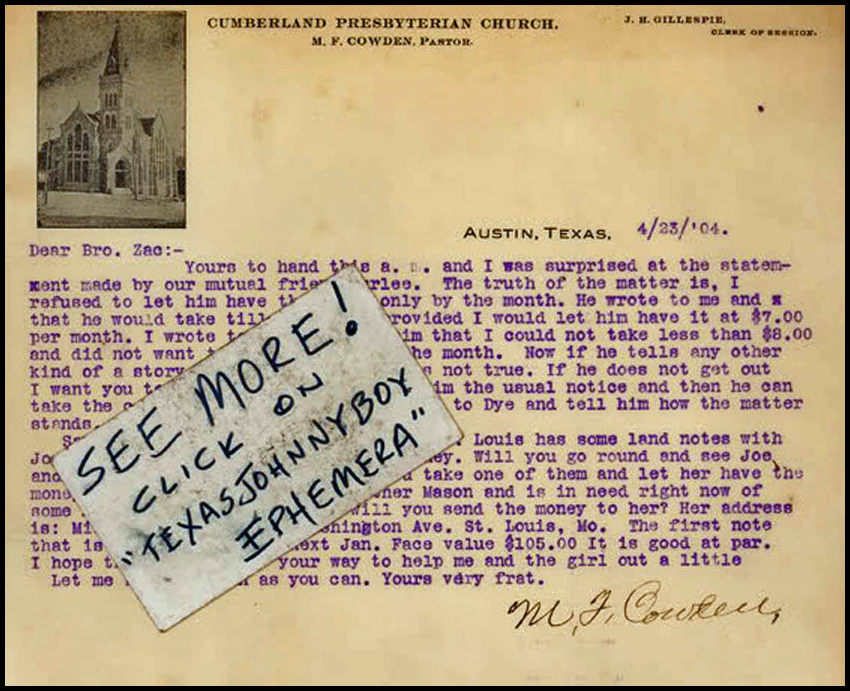 CUMBERLAND PRESBYTERIAN CHURCH.
M. F. COWDEN, PASTOR.
J. H. GILLESPIE,
CLERK OF SESSION.
AUSTIN, TEXAS, 4/23/'04.
Dear Bro. Zac:-
Yours to hand this a. m. and I was surprised at the statem-
ment made by our mutual rlee. The truth of the matter is, I
refused to let him have only by the month. He wrote to me and
that he would take till rovided I would let him have it at $7.00
per month. I wrote im that I could not take less than $8.00
and did not want he month. Now if he tells any other
kind of a story s not true. If he does not get out
I want you im the usual notice and then he can
take the to Dye and tell him how the matter
stands.
Louis has some land notes with
Jo ey. Will you go round and see Joe,
and take one of them and let her have the
mone ner Mason and is in need right now of
some Will you send the money to her? Her address
is: Mi hington Ave. St. Louis, Mo. The first note
that is ext Jan. Face value $105.00 It is good at par.
I hope your way to help me and the girl out a little
Let me as you can. Yours very frat.
M. F. Cowden,
SEE MORE!
CLICK ON
"TEXASJOHNNYBOY
EPHEMERA"